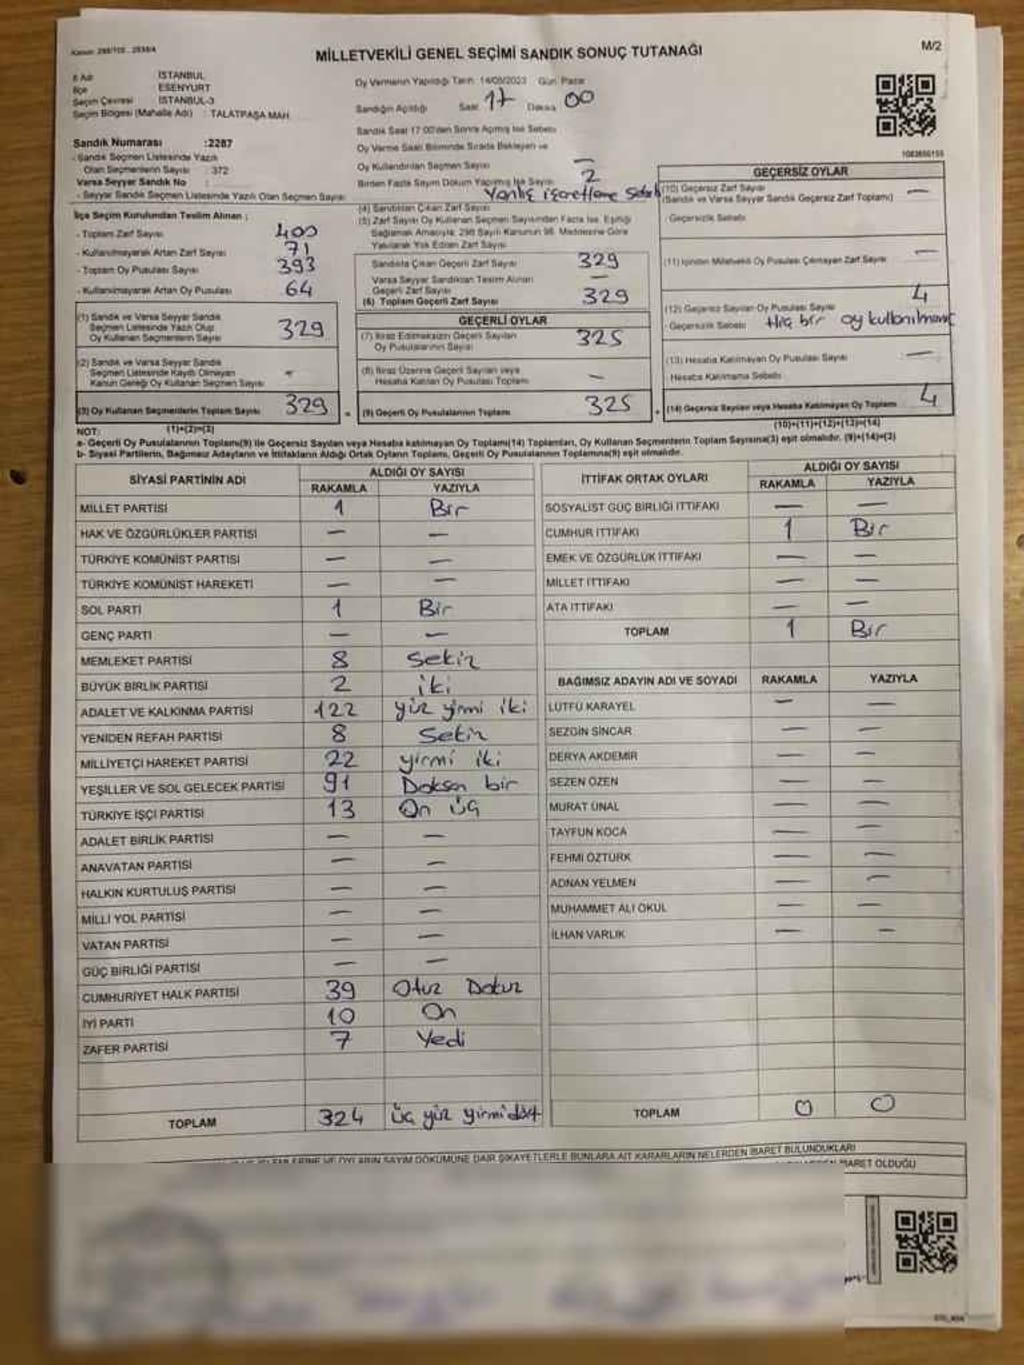 Kanun: 298/105 , 2839/4
MİLLETVEKİLİ GENEL SEÇİMİ SANDIK SONUÇ TUTANAĞI
M/2
İl Adı : İSTANBUL
İlçe : ESENYURT
Seçim Çevresi : İSTANBUL-3
Seçim Bölgesi (Mahalle Adı) : TALATPAŞA MAH.
Oy Vermenin Yapıldığı Tarih: 14/05/2023 Gün: Pazar
Sandığın Açıldığı Saat: 17 Dakika: 00
Sandık Saat 17:00'den Sonra Açılmış İse Sebebi
Sandık Numarası :2287
- Sandık Seçmen Listesinde Yazılı
Olan Seçmenlerin Sayısı : 372
Varsa Seyyar Sandık No :
- Seyyar Sandık Seçmen Listesinde Yazılı Olan Seçmen Sayısı:
Oy Verme Saati Bitiminde Sırada Bekleyen ve
Oy Kullandırılan Seçmen Sayısı —
Birden Fazla Sayım Döküm Yapılmış İse Sayısı 2
Yanlış işaretleme sebebi
İlçe Seçim Kurulundan Teslim Alınan :
- Toplam Zarf Sayısı 400
- Kullanılmayarak Artan Zarf Sayısı 71
- Toplam Oy Pusulası Sayısı 393
- Kullanılmayarak Artan Oy Pusulası 64
(1) Sandık ve Varsa Seyyar Sandık
Seçmen Listesinde Yazılı Olup
Oy Kullanan Seçmenlerin Sayısı 329
(2) Sandık ve Varsa Seyyar Sandık
Seçmen Listesinde Kaydı Olmayan
Kanun Gereği Oy Kullanan Seçmen Sayısı -
(3) Oy Kullanan Seçmenlerin Toplam Sayısı 329
(1)+(2)=(3)
(4) Sandıktan Çıkan Zarf Sayısı
(5) Zarf Sayısı Oy Kullanan Seçmen Sayısından Fazla İse, Eşitliği
Sağlamak Amacıyla, 298 Sayılı Kanunun 98. Maddesine Göre
Yakılarak Yok Edilen Zarf Sayısı
Sandıkta Çıkan Geçerli Zarf Sayısı 329
Varsa Seyyar Sandıktan Teslim Alınan
Geçerli Zarf Sayısı —
(6) Toplam Geçerli Zarf Sayısı 329
GEÇERLİ OYLAR
(7) İtiraz Edilmeksizin Geçerli Sayılan
Oy Pusulalarının Sayısı 325
(8) İtiraz Üzerine Geçerli Sayılan veya
Hesaba Katılan Oy Pusulası Toplamı —
(9) Geçerli Oy Pusulalarının Toplamı 325
1083655155
GEÇERSİZ OYLAR
(10) Geçersiz Zarf Sayısı
(Sandık ve Varsa Seyyar Sandık Geçersiz Zarf Toplamı) —
- Geçersizlik Sebebi
(11) İçinden Milletvekili Oy Pusulası Çıkmayan Zarf Sayısı —
(12) Geçersiz Sayılan Oy Pusulası Sayısı 4
- Geçersizlik Sebebi Hiç bir oy kullanılmamış
(13) Hesaba Katılmayan Oy Pusulası Sayısı —
- Hesaba Katılmama Sebebi
(14) Geçersiz Sayılan veya Hesaba Katılmayan Oy Toplamı 4
(10)+(11)+(12)+(13)=(14)
NOT:
a- Geçerli Oy Pusulalarının Toplamı(9) ile Geçersiz Sayılan veya Hesaba katılmayan Oy Toplamı(14) Toplamları, Oy Kullanan Seçmenlerin Toplam Sayısına(3) eşit olmalıdır. (9)+(14)=(3)
b- Siyasi Partilerin, Bağımsız Adayların ve İttifakların Aldığı Ortak Oyların Toplamı, Geçerli Oy Pusulalarının Toplamına(9) eşit olmalıdır.
SİYASİ PARTİNİN ADI ALDIĞI OY SAYISI
RAKAMLA YAZIYLA
MİLLET PARTİSİ 1 Bir
HAK VE ÖZGÜRLÜKLER PARTİSİ — —
TÜRKİYE KOMÜNİST PARTİSİ — —
TÜRKİYE KOMÜNİST HAREKETİ — —
SOL PARTİ 1 Bir
GENÇ PARTİ — —
MEMLEKET PARTİSİ 8 sekiz
BÜYÜK BİRLİK PARTİSİ 2 iki
ADALET VE KALKINMA PARTİSİ 122 yüz yirmi iki
YENİDEN REFAH PARTİSİ 8 Sekiz
MİLLİYETÇİ HAREKET PARTİSİ 22 yirmi iki
YEŞİLLER VE SOL GELECEK PARTİSİ 91 Doksan bir
TÜRKİYE İŞÇİ PARTİSİ 13 On üç
ADALET BİRLİK PARTİSİ — —
ANAVATAN PARTİSİ — —
HALKIN KURTULUŞ PARTİSİ — —
MİLLİ YOL PARTİSİ — —
VATAN PARTİSİ — —
GÜÇ BİRLİĞİ PARTİSİ — —
CUMHURİYET HALK PARTİSİ 39 Otuz Dokuz
İYİ PARTİ 10 On
ZAFER PARTİSİ 7 Yedi
TOPLAM 324 üç yüz yirmi dört
İTTİFAK ORTAK OYLARI ALDIĞI OY SAYISI
RAKAMLA YAZIYLA
SOSYALİST GÜÇ BİRLİĞİ İTTİFAKI — —
CUMHUR İTTİFAKI 1 Bir
EMEK VE ÖZGÜRLÜK İTTİFAKI — —
MİLLET İTTİFAKI — —
ATA İTTİFAKI — —
TOPLAM 1 Bir
BAĞIMSIZ ADAYIN ADI VE SOYADI RAKAMLA YAZIYLA
LÜTFÜ KARAYEL — —
SEZGİN SİNCAR — —
DERYA AKDEMİR — —
SEZEN ÖZEN — —
MURAT ÜNAL — —
TAYFUN KOCA — —
FEHMİ ÖZTÜRK — —
ADNAN YELMEN — —
MUHAMMET ALİ OKUL — —
İLHAN VARLIK — —
TOPLAM 0 0
İŞLEMLERİNE VE OYLARIN SAYIM DÖKÜMÜNE DAİR ŞİKAYETLERLE BUNLARA AİT KARARLARIN NELERDEN İBARET BULUNDUKLARI
İBARET OLDUĞU